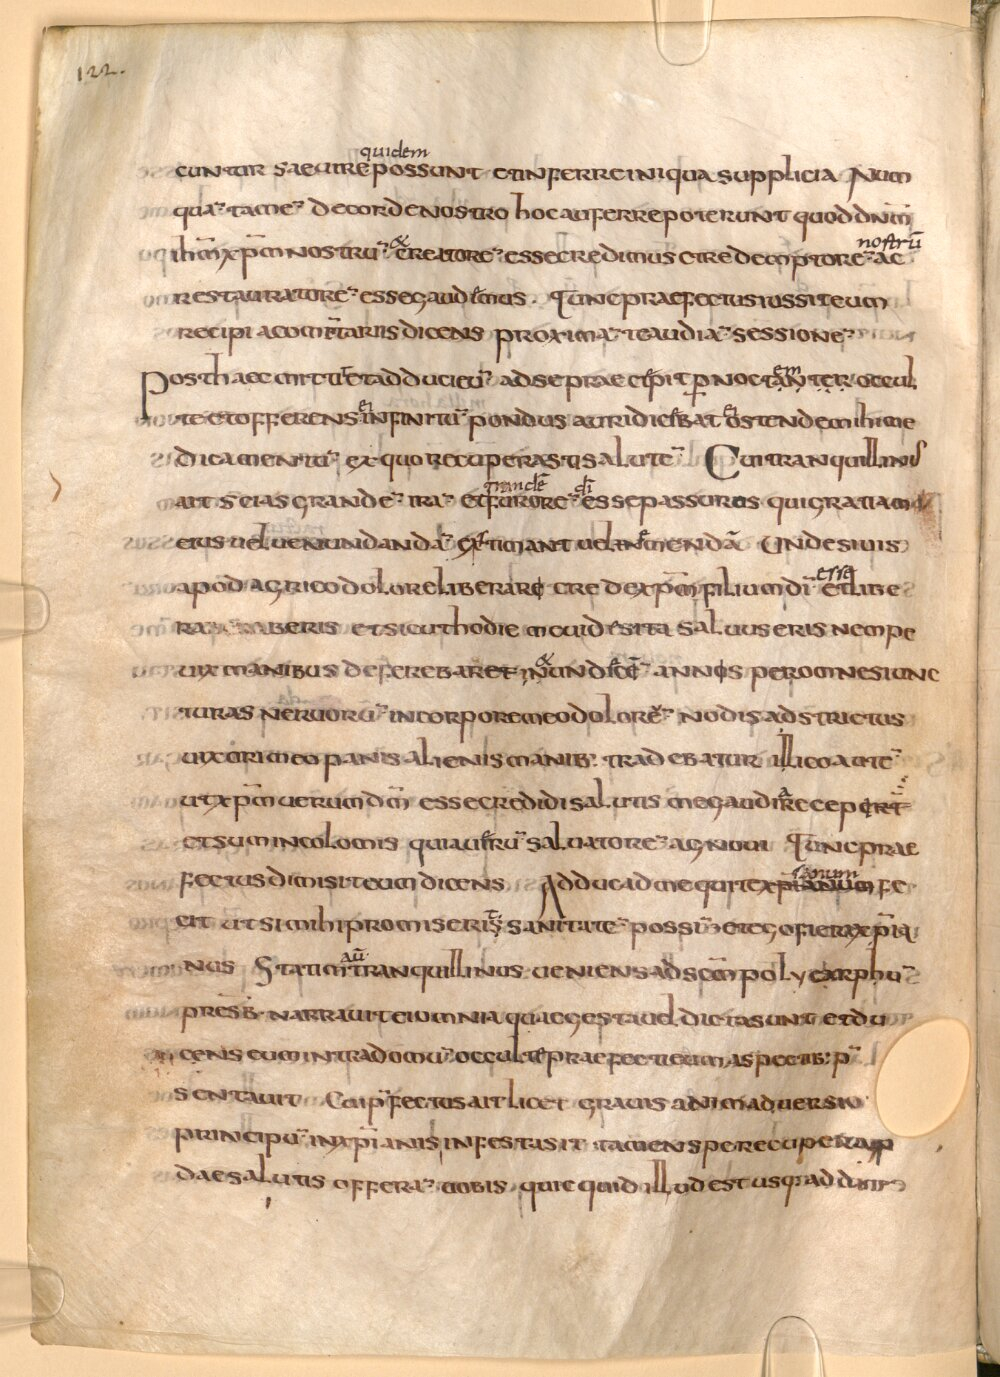 122.
quidem
cuntur saeuire possunt et inferre iniqua supplicia Num
qua᷒ tam̄ de corde nostro hoc auferre poterunt quod dn̄m
nostrū
ih̄m xp̄m nostrū & creatorē esse credimus et redemptorē ac
restauratorē esse gaudemus. Tunc praefectus iussit eum
recipi a com̄tariis dicens proximā te audiā sessionē
Post haec mittit et adduci eū ad se praecepit p̱ noctem ter occul
te et offerens ei infinitū pondus auri dicebat ei ostende mihi me
dicamentū ex quo recuperasti salutē Cui tranquillinus
grandē di
ait scias grandē irā et furorē esse passuros qui gratiam
eius uel uenundandā extimant uel emendā Unde si uis
esse
a podagrico dolore liberare crede xp̄m filium dī et libe
raberis et sicut hodie me uides ita saluus eris nempe
uix manibus deferebar et in undecē annos per omnes iunc
turas neruorū in corpore meo dolorē nodis adstrictus
uix ori meo panis alienis manib: tradebatur illico autē
ut xp̄m uerum dm̄ esse credidi salutis me gaudia recep
et sum incolomis quia uerū saluatorē agnoui Tunc prae
fectus dimisit eum dicens Adduc ad me qui te xp̄ianum fe
cit ut si mihi promiserit sanitatē possim et ego fieri xp̄ia
aū
nus Statim tranquillinus ueniens ad sc̄m polycarphū
presb. narrauit ei omnia quae gesta uel dicta sunt et du
cens eum intra domū occulte praefecti eum aspectib: p᷒
sentauit Cui p᷒fectus ait licet grauis animaduersio
principū in xp̄ianis infesta sit tamen spe recuperan
dae salutis offerā uobis quicquid illud est usq: ad dimi